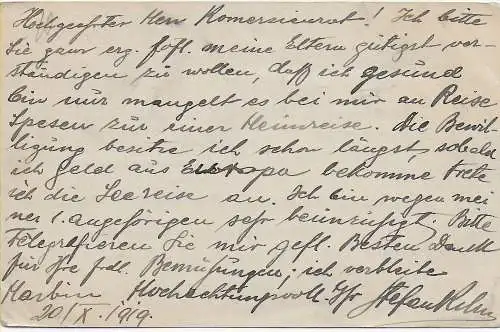 Hochgeehrter Herr Komersienrat! Ich bitte
Sie ganz erg. höfl. meine Eltern gütigst ver-
ständigen zu wollen, daß ich gesund
bin nur mangelt es bei mir an Reise
Spesen zur einer Heimreise. Die Bewil-
ligung besitze ich schon längst, sobald
ich Geld aus Europa bekomme trete
ich die Seereise an. Ich bin wegen mei
ner l. angehörigen sehr beunruhigt. Bitte
Telegrafieren Sie mir gefl. Besten Dank
für Ihre frdl. Bemühungen; ich verbleibe
Harbin Hochachtungsvoll Ihr Stefan
20/X. 1919.